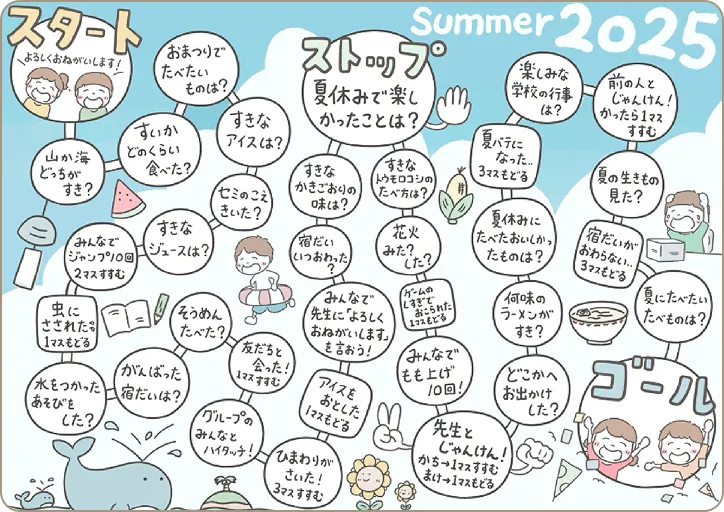 Summer 2025
スタート
よろしくおねがいします！
山か海
どっちが
すき？
すいか
どのくらい
食べた？
おまつりで
たべたい
ものは？
すきな
アイスは？
セミのこえ
きいた？
すきな
ジュースは？
みんなで
ジャンプ10回
2マスすすむ
虫に
さされた
1マスもどる
水をつかった
あそびを
した？
がんばった
宿だいは？
そうめん
たべた？
友だちと
会った！
1マスすすむ
グループの
みんなと
ハイタッチ！
ひまわりが
さいた！
3マスすすむ
アイスを
おとした
1マスもどる
みんなで
先生に「よろしく
おねがいします」
を言おう！
宿だい
いつおわった？
すきな
かきごおりの
味は？
ストップ
夏休みで楽し
かったことは？
すきな
トウモロコシの
たべ方は？
花火
みた？
した？
ゲームの
しすぎで
おこられた
1マスもどる
みんなで
もも上げ
10回！
先生と
じゃんけん！
かち→1マスすすむ
まけ→1マスもどる
どこかへ
お出かけ
した？
何味の
ラーメンが
すき？
夏休みに
たべたおいしかっ
たものは？
夏バテに
なった..
3マスもどる
楽しみな
学校の行事
は？
前の人と
じゃんけん！
かったら1マス
すすむ
夏の生きもの
見た？
宿だいが
おわらない..
3マスもどる
夏にたべたい
たべものは？
ゴール